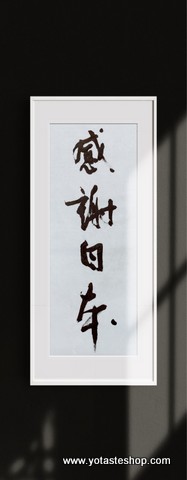 感謝日本
www.yotasteshop.com